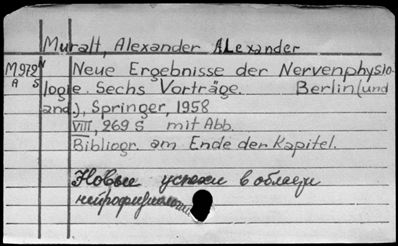 Muralt, Alexander Alexander
M979 N Neue Ergebnisse der Nervenphysio-
A S logie. Sechs Vorträge. Berlin (und
and.), Springer, 1958
VIII, 269 S mit Abb.
Bibliogr. am Ende der Kapitel.
Новые успехи в области
нейрофизиологии